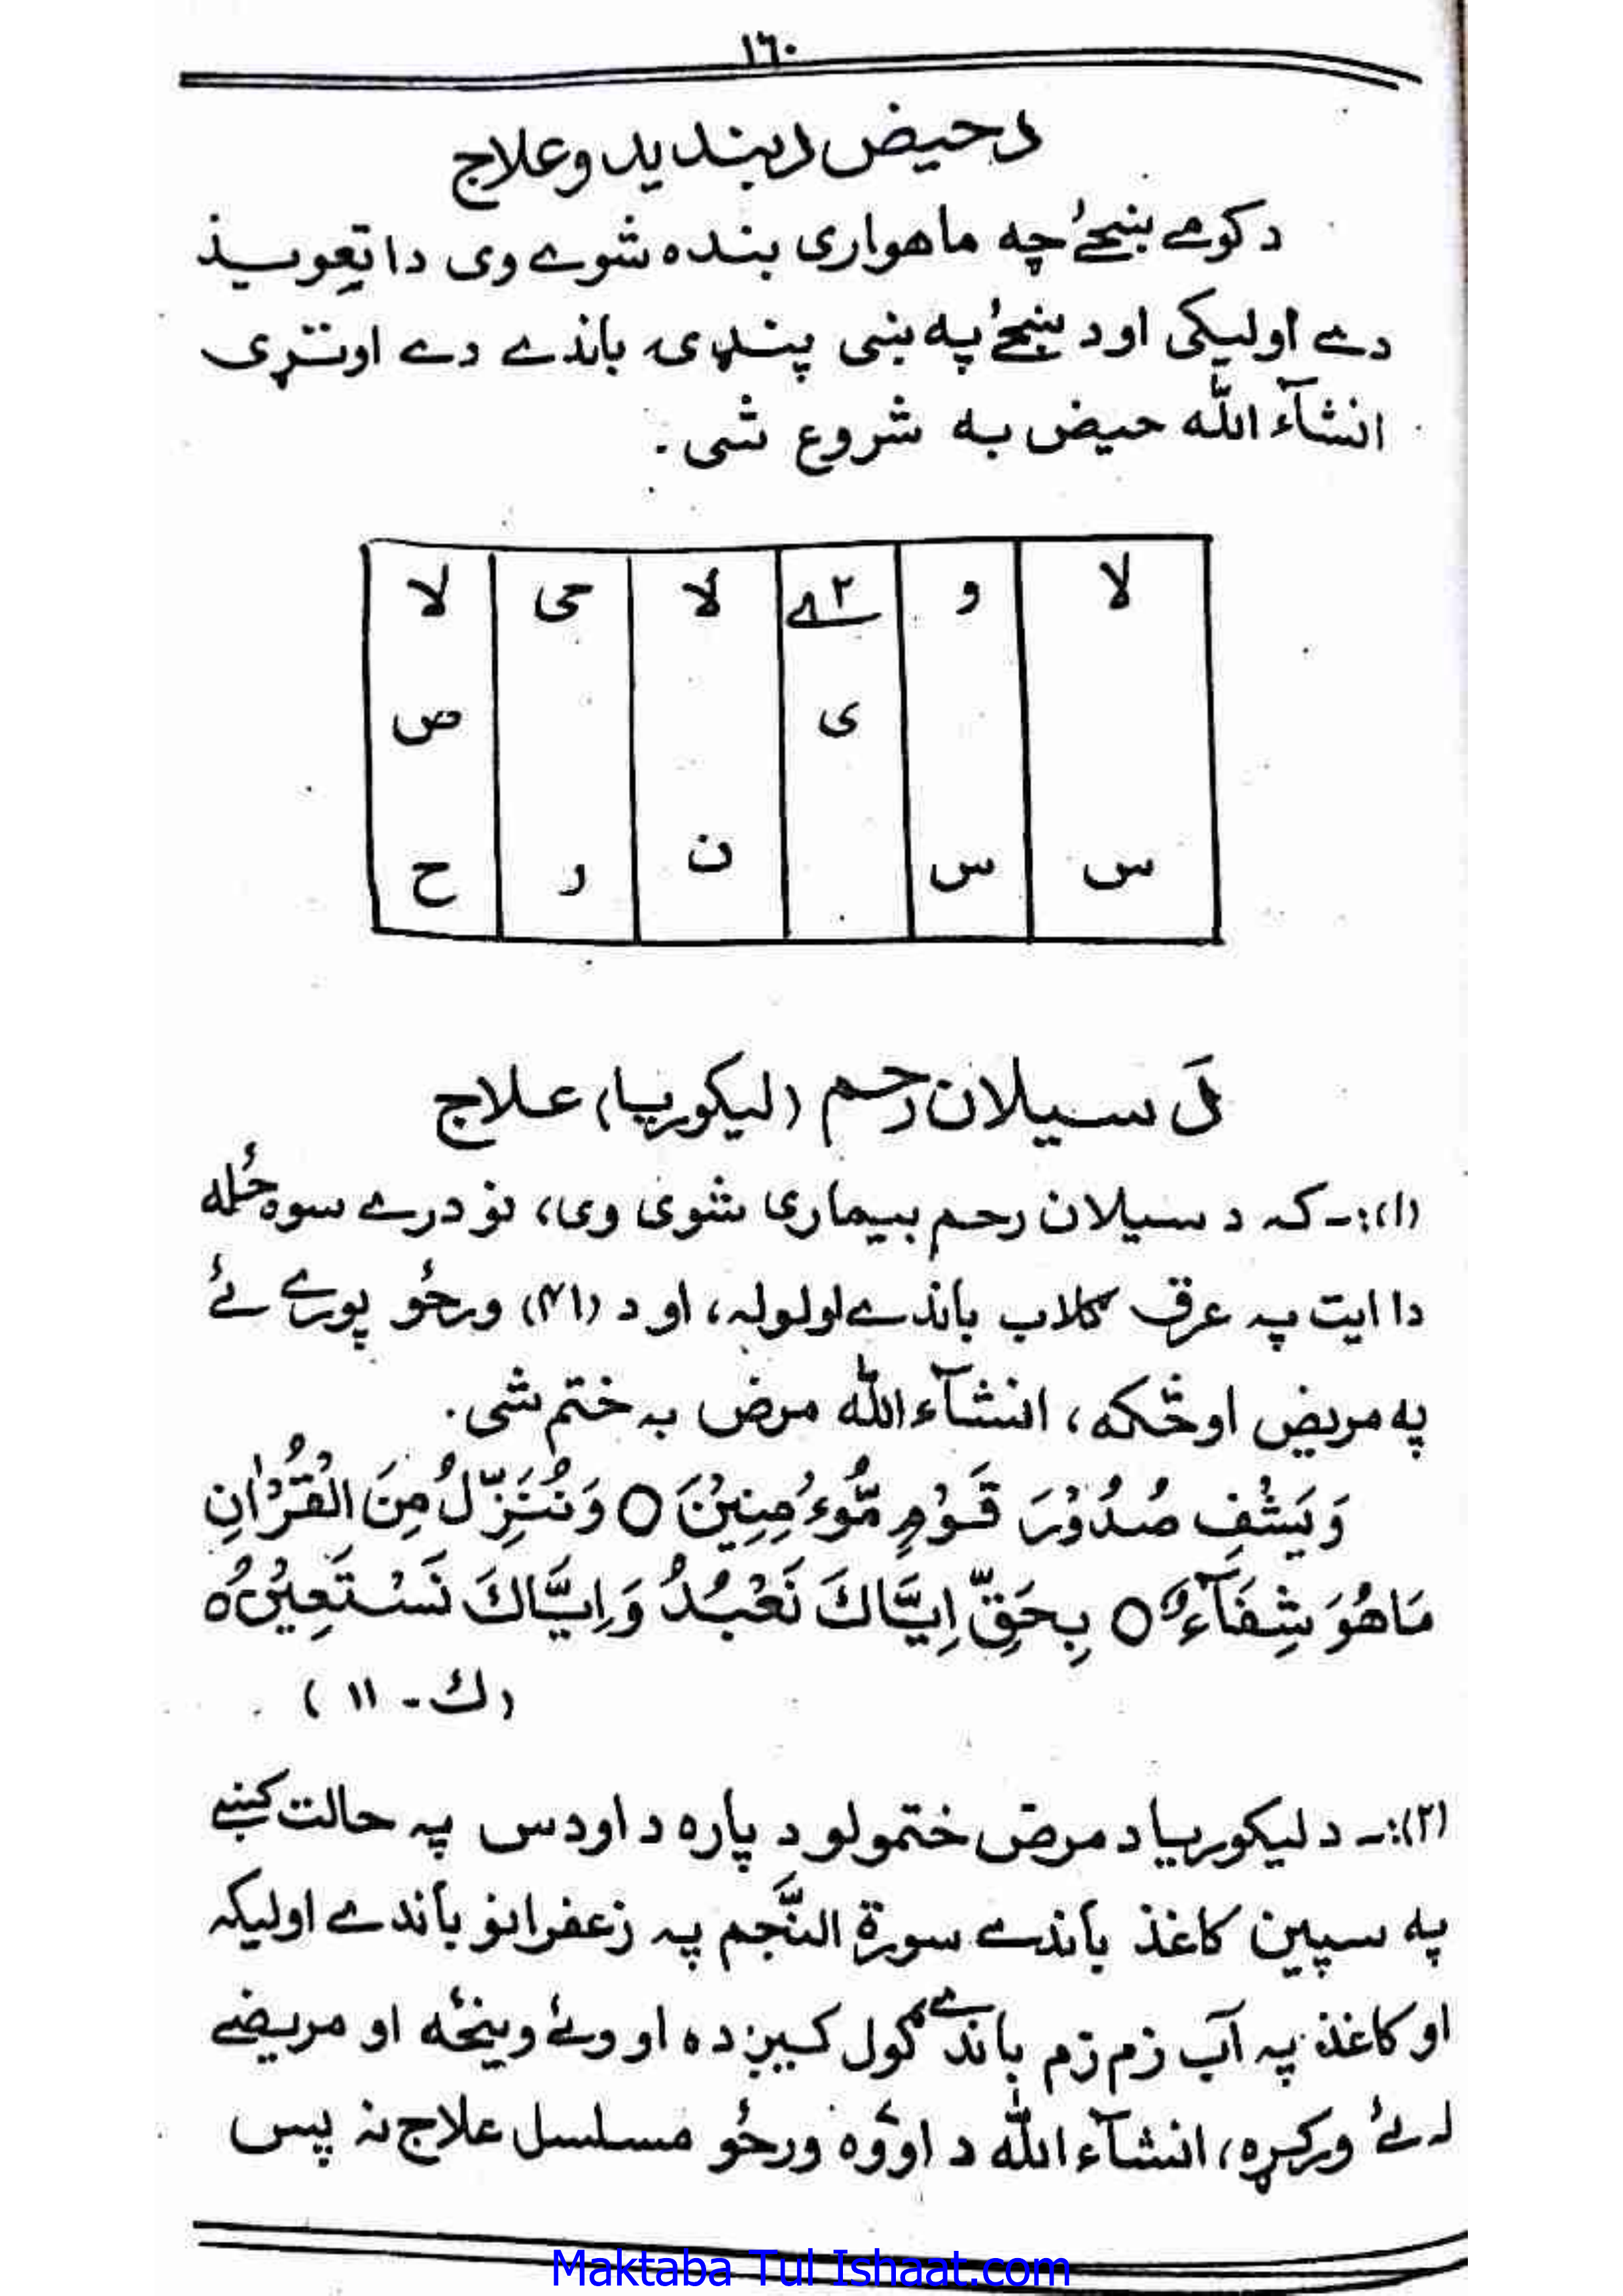 ١٦٠
د حیض د بندیدو علاج
د کومے ښځے چه ماهواری بنده شوے وی دا تعویذ
دے اولیکی او د ښځے په ښی پنډۍ باندے دے اوتړی
انشآء الله حیض به شروع شی .
لا و ۲ے لا حی لا
ی ص
س س ن ر ح
دَ سیلان رحم (لیکوریا) علاج
(۱):- که د سیلان رحم بیماری شوی وی، نو درے سوه ځله
دا ایت په عرق گلاب باندے اولوله، او د (۴۱) ورځو پورے ئے
په مریض اوڅکه، انشآء الله مرض به ختم شی.
وَيَشْفِ صُدُوْرَ قَوْمٍ مُّؤْمِنِيْنَ ○ وَنُنَزِّلُ مِنَ الْقُرْاٰنِ
مَا هُوَ شِفَآءٌ ○ بِحَقِّ اِيَّاكَ نَعْبُدُ وَاِيَّاكَ نَسْتَعِيْنُ ○
(ک - ۱۱ )
(۲):- د لیکوریا د مرض ختمولو د پاره د اودس په حالت کښے
په سپین کاغذ باندے سورة النَّجم په زعفرانو باندے اولیکه
او کاغذ په آب زم زم باندے گول کیږده او وئے وینځه او مریضے
له ئے ورکړه، انشآء الله د اوّوه ورځو مسلسل علاج نه پس
Maktaba Tul Ishaat.com